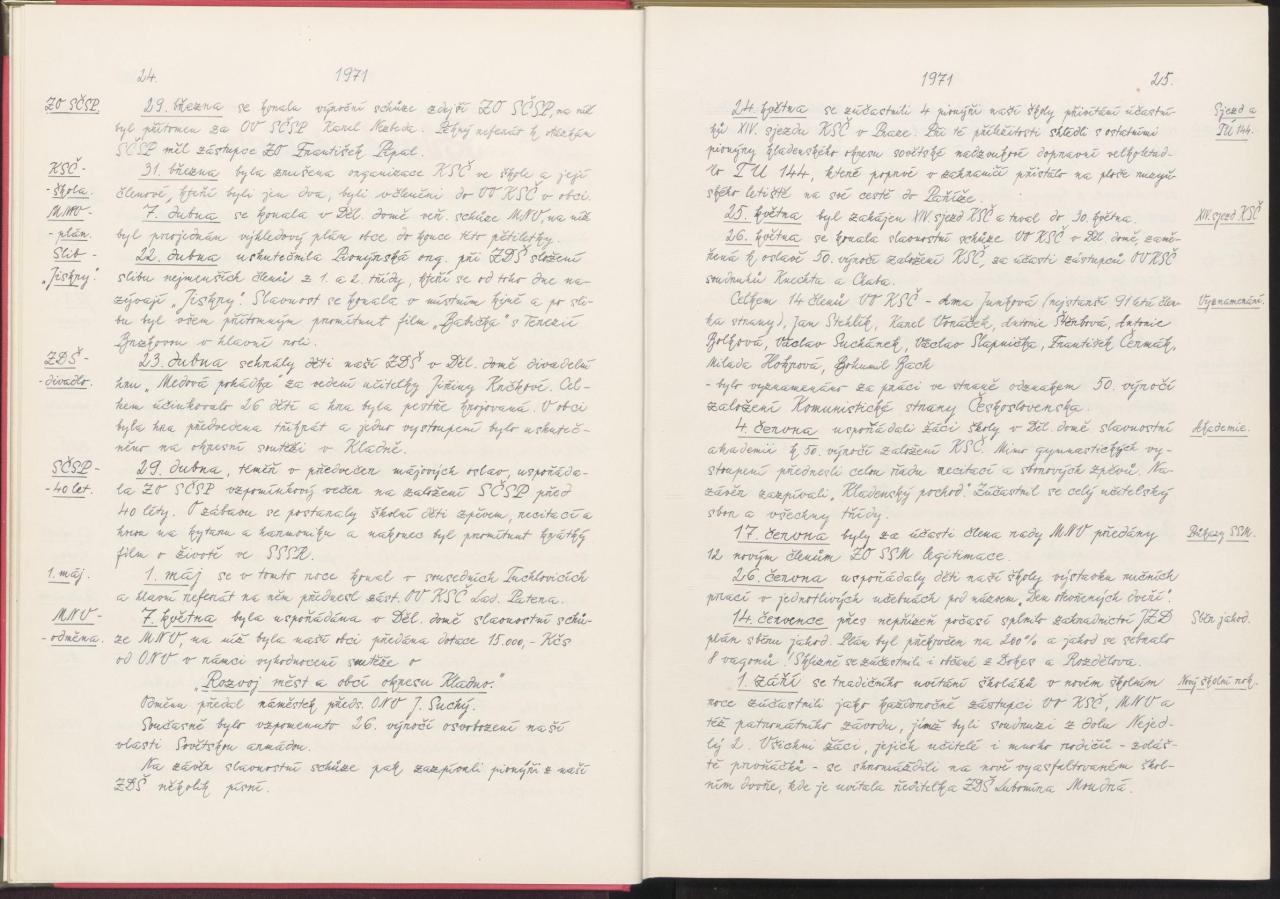 24.
1971
ZO SČSP.
29. března se konala výroční schůze zdejší ZO SČSP, na níž
byl přítomen za OV SČSP Karel Nezbeda. Pěkný referát k otázkám
SČSP měl zástupce ZO František Pépal.
KSČ -
- škola.
31. března byla zrušena organizace KSČ ve škole a její
členové, kteří byli jen dva, byli včleněni do VO KSČ v obci.
MNV -
- plán.
7. dubna se konala v Děl. domě veř. schůze MNV, na níž
byl projednán výhledový plán obce do konce této pětiletky.
Slib -
„Jiskry“.
22. dubna uskutečnila Pionýrská org. při ZDŠ složení
slibu nejmenších členů z 1. a 2. třídy, kteří se od toho dne na-
zývají „Jiskry“. Slavnost se konala v místním kině a po sli-
bu byl všem přítomným promítnut film „Babička“ s Terezií
Brzkovou v hlavní roli.
ZDŠ -
- divadlo.
23. dubna sehrály děti naší ZDŠ v Děl. domě divadelní
hru „Medová pohádka“ za vedení učitelky Jiřiny Krčkové. Cel-
kem účinkovalo 26 dětí a hra byla pestře krojovaná. V obci
byla hra předvedena třikrát a jedno vystoupení bylo uskuteč-
něno na okresní soutěži v Kladně.
SČSP -
- 40 let.
29. dubna, téměř v předvečer májových oslav, uspořáda-
la ZO SČSP vzpomínkový večer na založení SČSP před
40 léty. O zábavu se postaraly školní děti zpěvem, recitací a
hrou na kytaru a harmoniku a nakonec byl promítnut krátký
film o životě ve SSSR.
1. máj.
1. máj se v tomto roce konal v sousedních Tuchlovicích
a hlavní referát na něm přednesl zást. OV KSČ Lad. Patera.
MNV -
- odměna.
7. května byla uspořádána v Děl. domě slavnostní schů-
ze MNV, na níž byla naší obci předána dotace 15.000,- Kčs
od ONV v rámci vyhodnocení soutěže o
„Rozvoj měst a obcí okresu Kladno.“
Odměnu předal náměstek předs. ONV J. Suchý.
Současně bylo vzpomenuto 26. výročí osvobození naší
vlasti Sovětskou armádou.
Na závěr slavnostní schůze pak zazpívali pionýři z naší
ZDŠ několik písní.
1971
25.
Sjezd a
TU 144.
24. května se zúčastnili 4 pionýři naší školy přivítání účastní-
ků XIV. sjezdu KSČ v Praze. Při té příležitosti shlédli s ostatními
pionýry kladenského okresu sovětské nadzvukové dopravní velkoletad-
lo TU 144, které poprvé v zahraničí přistálo na ploše ruzyň-
ského letiště na své cestě do Paříže.
XIV. sjezd KSČ
25. května byl zahájen XIV. sjezd KSČ a trval do 30. května.
26. května se konala slavnostní schůze VO KSČ v Děl. domě, zamě-
řená k oslavě 50. výročí založení KSČ, za účasti zástupců OV KSČ
soudruhů Knechta a Chaba.
Vyznamenání.
Celkem 14 členů VO KSČ - Anna Junková (nejstarší 91 letá člen-
ka strany), Jan Stehlík, Karel Vonáček, Antonie Štěrbová, Antonie
Bolková, Václav Suchánek, Václav Slapnička, František Čermák,
Milada Hokrová, Bohumil Bach
- bylo vyznamenáno za práci ve straně odznakem 50. výročí
založení Komunistické strany Československa.
Akademie.
4. června uspořádali žáci školy v Děl. domě slavnostní
akademii k 50. výročí založení KSČ. Mimo gymnastických vy-
stoupení přednesli celou řadu recitací a sborových zpěvů. Na-
závěr zazpívali „Kladenský pochod“. Zúčastnil se celý učitelský
sbor a všechny třídy.
Průkazy SSM.
17. června byly za účasti člena rady MNV předány
12 novým členům ZO SSM legitimace.
26. června uspořádaly děti naší školy výstavku ručních
prací v jednotlivých učebnách pod názvem „Den otevřených dveří“.
Sběr jahod.
14. července přes nepřízeň počasí splnilo zahradnictví JZD
plán sběru jahod. Plán byl překročen na 200% a jahod se sebralo
8 vagonů! Sklizně se zúčastnili i občané z Dokes a Rozdělova.
Nový školní rok.
1. září se tradičního uvítání školáků v novém školním
roce zúčastnili jako každoročně zástupci VO KSČ, MNV a
též patronátního závodu, jímž byli soudruzi z dolu Nejed-
lý 2. Všichni žáci, jejich učitelé i mnoho rodičů - zvláš-
tě prvňáčků - se shromáždili na nově vyasfaltovaném škol-
ním dvoře, kde je uvítala ředitelka ZDŠ Lubomíra Moudrá.